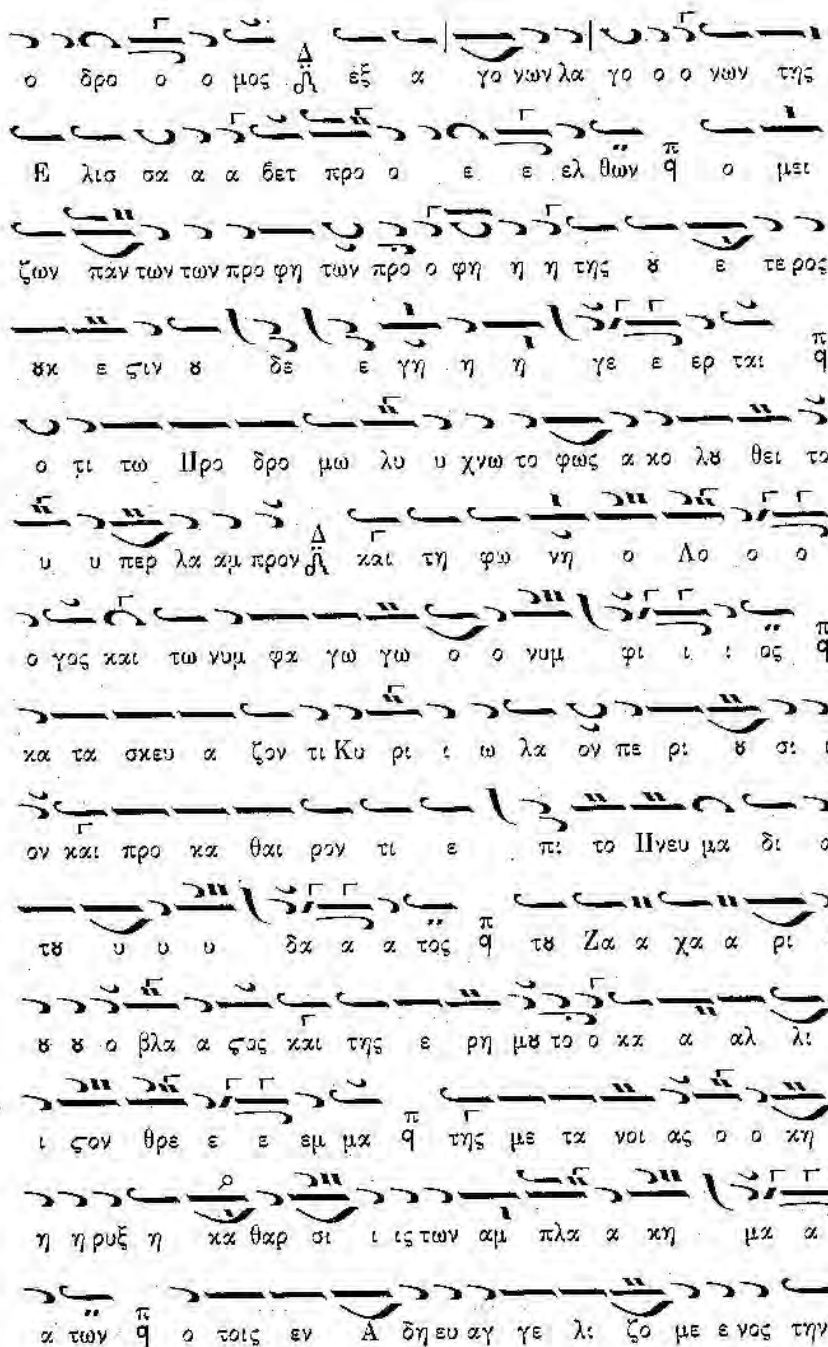 ο δρο ο ο μος Δ εξ α γο νων λα γο ο ο νων της
Ε λισ σα α α βετ προ ο ε ε ελ θων π q ο μει
ζων παν των των προ φη των προ ο φη η η της ȣ ε τε ρος
ȣκ ε ςιν ȣ δε ε γη η η γε ε ερ ται π q
ο τι τω Προ δρο μω λυ υ χνω το φως α κο λȣ θει το
υ υ περ λα αμ προν Δ και τη φω νη ο Λο ο ο
ο γος και τω νυμ φα γω γω ο ο νυμ φι ι ι ος π q
κα τα σκευ α ζον τι Κυ ρι ι ω λα ον πε ρι ȣ σι ι
ον και προ κα θαι ρον τι ε πι το Πνευ μα δι α
τȣ υ υ υ δα α α τος π q τȣ Ζα α χα α ρι
ȣ ȣ ο βλα α ςος και της ε ρη μȣ το ο κα α αλ λι
ι ςον θρε ε ε εμ μα π q της με τα νοι ας ο ο κη
η η ρυξ η κα θαρ σι ι ις των αμ πλα α κη μα α
α των π q ο τοις εν Α δη ευ αγ γε λι ζο με ε νος την